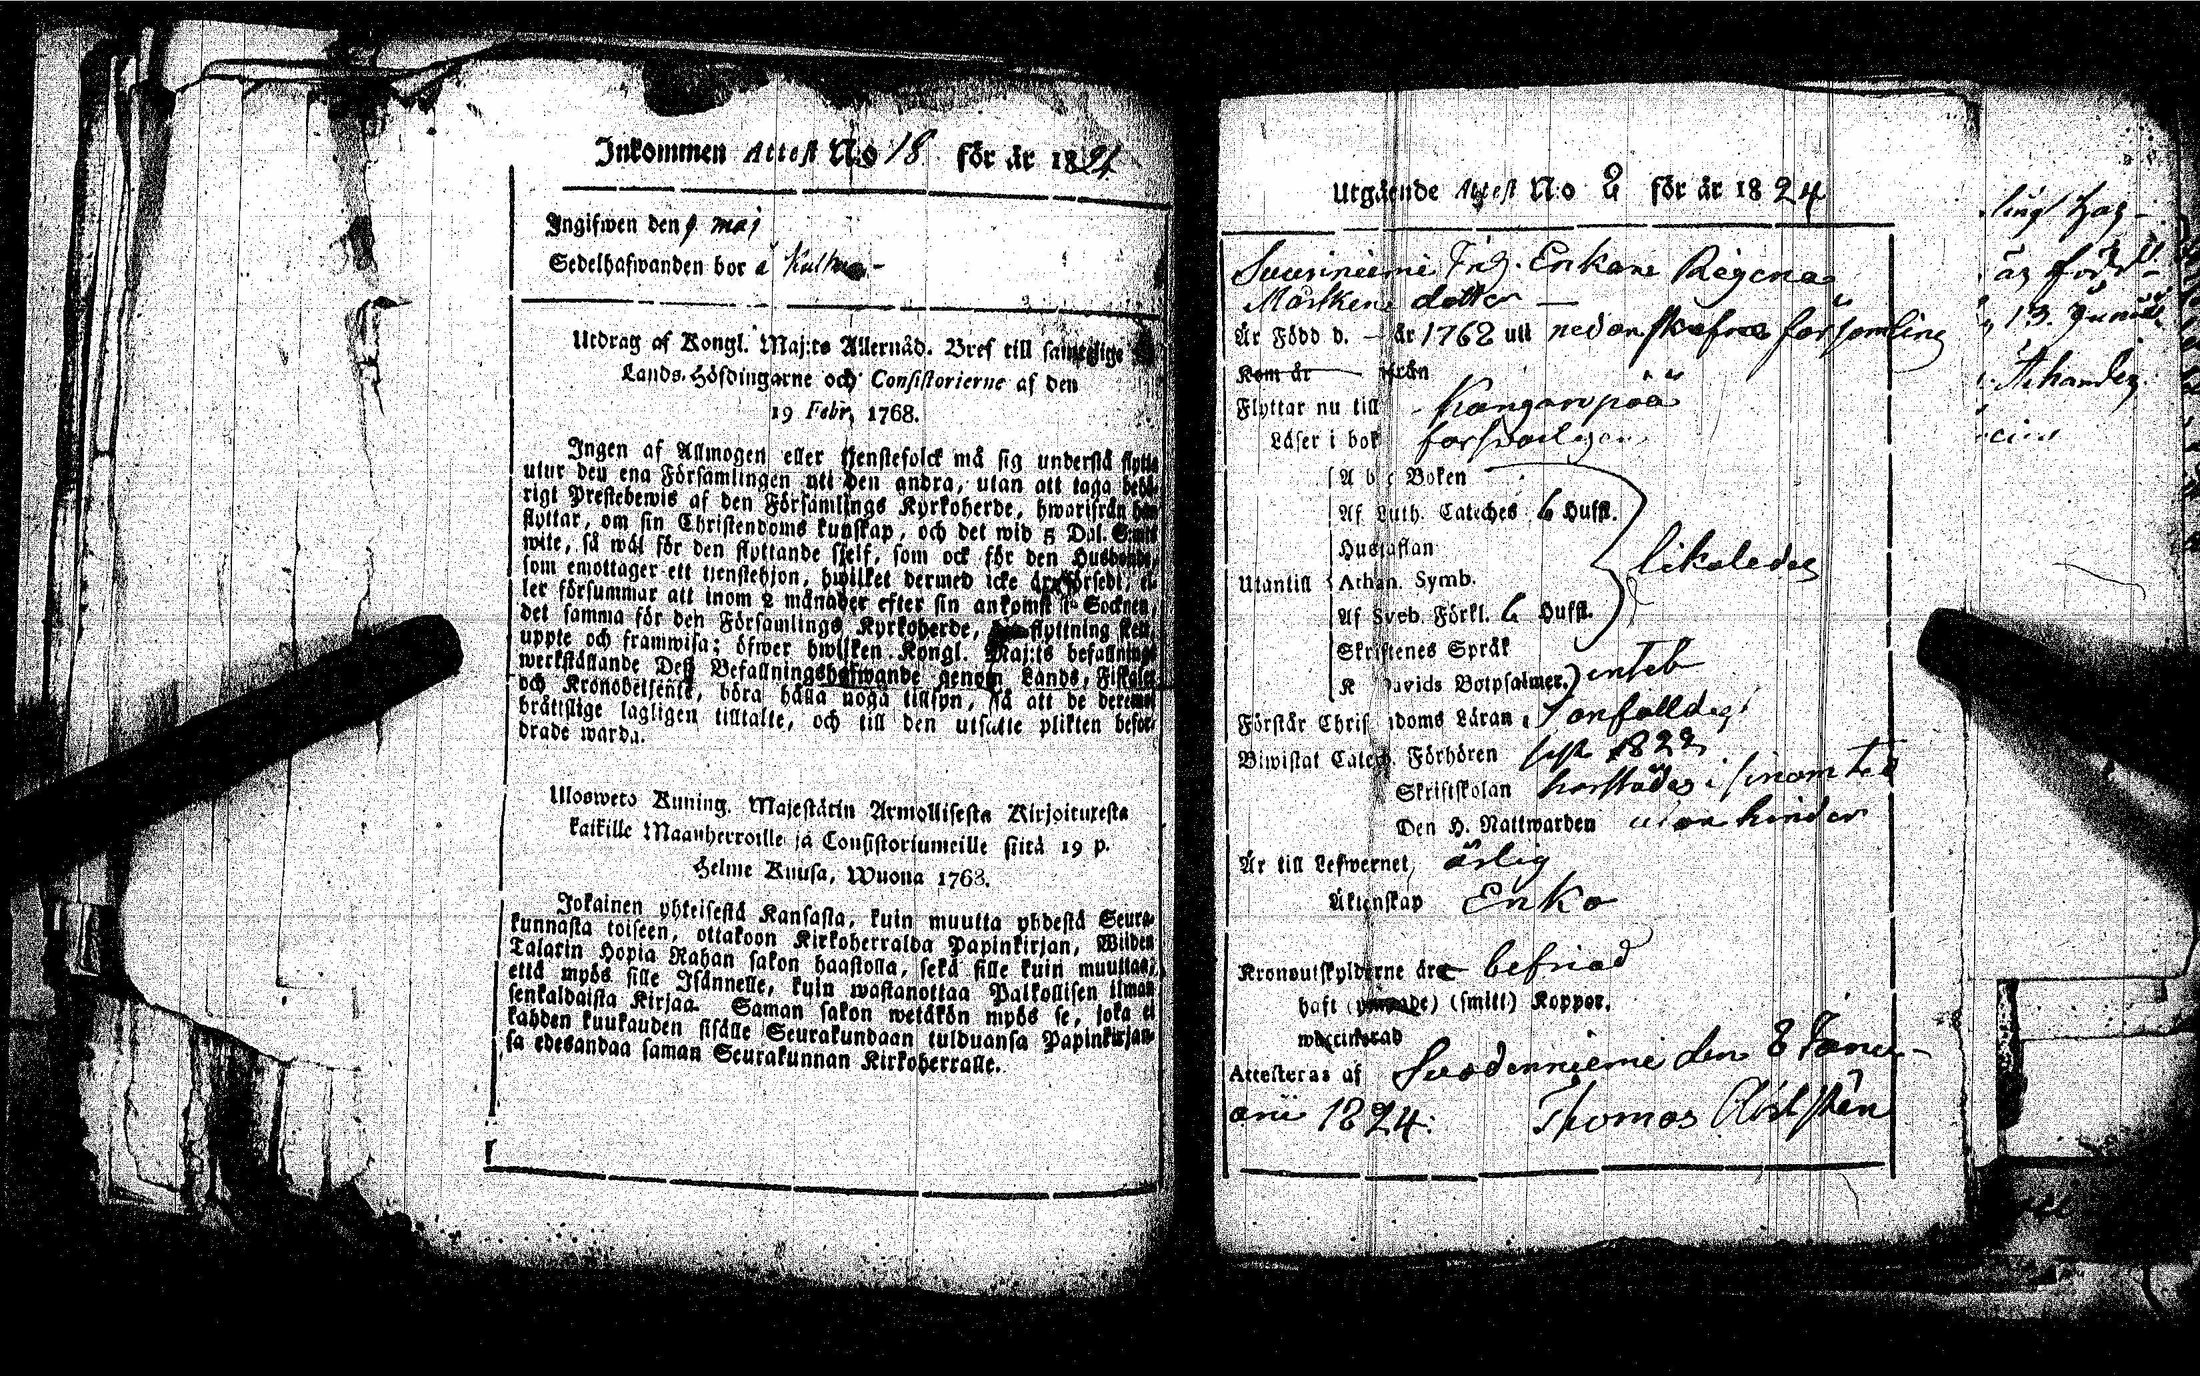 Inkommen Attest No 18 för är 1824
Ingifwen den 9 maj
Sedelhafwanden bor å
Utdrag af Kongl. Maj:ts Allernåd. Bref till samtelige
Lands-Höfdingarne och Consistorierne af den
19 Febr. 1768.
Ingen af Allmogen eller tjenstefolck må sig understå flytta
utur den ena Församlingen uti den andra, utan att taga behö-
rigt Prestebewis af den Församlings Kyrkoherde, hwarifrån han
flyttar, om sin Christendoms kunskap, och det wid 5 Dal. S:mts
wite, så wäl för den flyttande sjelf, som ock för den Husbonde,
som emottager ett tjenstehjon, hwilket dermed icke är försedt, el-
ler försummar att inom 2 månader efter sin ankomst til Socknen,
det samma för den Församlings Kyrkoherde, flyttning sker,
uppte och framwisa; öfwer hwilken Kongl. Maj:ts befallnings
werkställande Deß Befallningshafwande genom Lands, Fiskaler
och Kronobetjente, böra hålla noga tillsyn, så att de deremot
bråttslige lagligen tilltalte, och till den utsatte plikten befor-
drade warda.
Ulosweto Kuning. Majestätin Armollisesta Kirjoituxesta
kaikille Maanherroille ja Consistoriumeille siitä 19 p.
Helme Kuusa, Wuona 1768.
Jokainen yhteisestä Kansasta, kuin muutta yhdestä Seura-
kunnasta toiseen, ottakoon Kirkoherralda Papinkirjan, Wiiden
Talarin Hopia Rahan sakon haastolla, sekä sille kuin muuttaa,
että myös sille Isännelle, kuin wastanottaa Palkollisen ilman
senkaldaista Kirjaa. Saman sakon wetäkön myös se, joka ei
kahden kuukauden sisälle Seurakundaan tulduansa Papinkirjan-
sa edesandaa saman Seurakunnan Kirkoherralle.
Utgående Attest No 2 för är 1824
Suusiniemi Enkan Regina
dotter —
Är Född d. — år 1762 uti nedanskrefna församling
Kom år ifrån
Flyttar nu till Kanganpää
Läser i bok försvarligen
A b c Boken
Af Luth. Cateches 6 Hufst.
Hustaflan
Utantill Athan. Symb. likaledes
Af Sveb. Förkl. 6 Hufst.
Skriftenes Språk
K Davids Botpsalmer. intet
Förstår Christendoms Läran enfalldigt
Biwistat Catech. Förhören sist 1822
Skriftskolan i sinom tid
Den H. Nattwarden utan hinder
Är till Lefwernet, ärlig
Äktenskap Enka
Kronoutskylderne äre befriad
haft (smitt) Koppor.
waccinerad
Attesteras af Suodenniemi den 8 Janu-
arii 1824. Thomas
är född
13. Junii